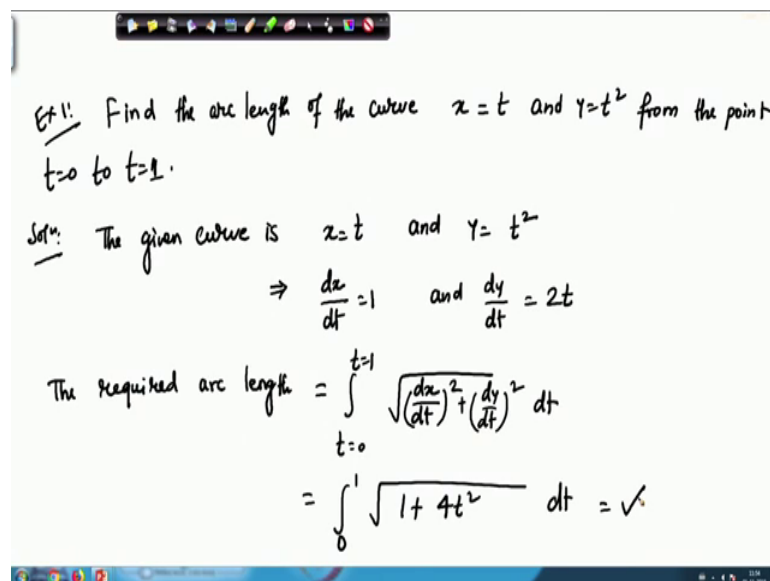 Ex 1: Find the arc length of the curve x = t and y = t² from the point
t=0 to t=1.
Solⁿ: The given curve is x = t and y = t²
⇒ dx/dt = 1 and dy/dt = 2t
The required arc length = ∫_{t=0}^{t=1} √((dx/dt)² + (dy/dt)²) dt
= ∫_0^1 √(1 + 4t²) dt = ✓